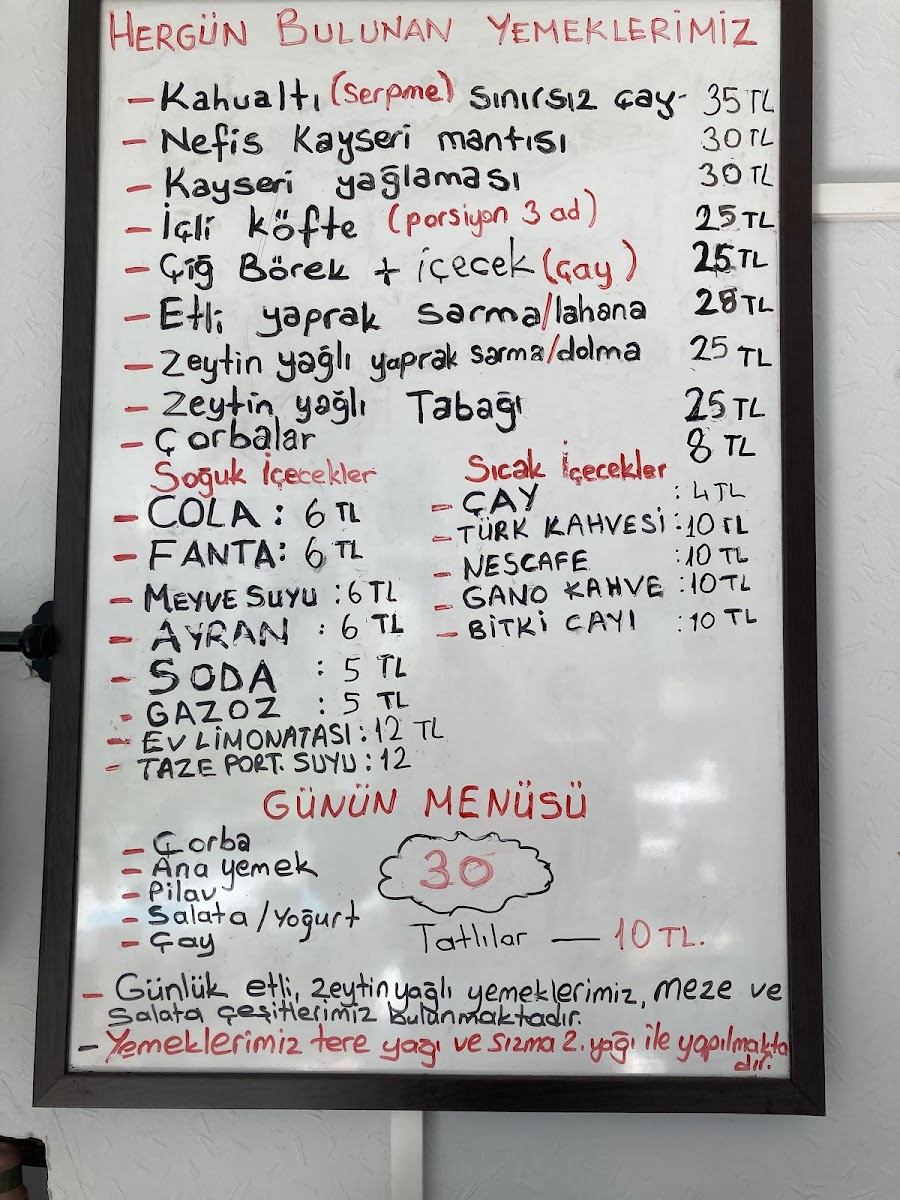 HERGÜN BULUNAN YEMEKLERİMİZ
- Kahvaltı (serpme) sınırsız çay- 35 TL
- Nefis Kayseri mantısı 30 TL
- Kayseri yağlaması 30 TL
- İçli köfte (porsiyon 3 ad) 25 TL
- Çiğ Börek + içecek (çay) 25 TL
- Etli yaprak sarma/lahana 28 TL
- Zeytin yağlı yaprak sarma/dolma 25 TL
- Zeytin yağlı Tabağı 25 TL
- Çorbalar 8 TL
Soğuk İçecekler
- COLA : 6 TL
- FANTA : 6 TL
- MEYVE SUYU : 6 TL
- AYRAN : 6 TL
- SODA : 5 TL
- GAZOZ : 5 TL
- EV LİMONATASI : 12 TL
- TAZE PORT. SUYU : 12
Sıcak İçecekler
- ÇAY : 4 TL
- TÜRK KAHVESİ : 10 TL
- NESCAFE : 10 TL
- GANO KAHVE : 10 TL
- BİTKİ CAYI : 10 TL
GÜNÜN MENÜSÜ
- Çorba
- Ana yemek
- Pilav
- Salata / Yoğurt
- Çay
30
Tatlılar — 10 TL.
- Günlük etli, zeytinyağlı yemeklerimiz, meze ve
salata çeşitlerimiz bulunmaktadır.
- Yemeklerimiz tere yağı ve sızma z. yağı ile yapılmakta
dır.